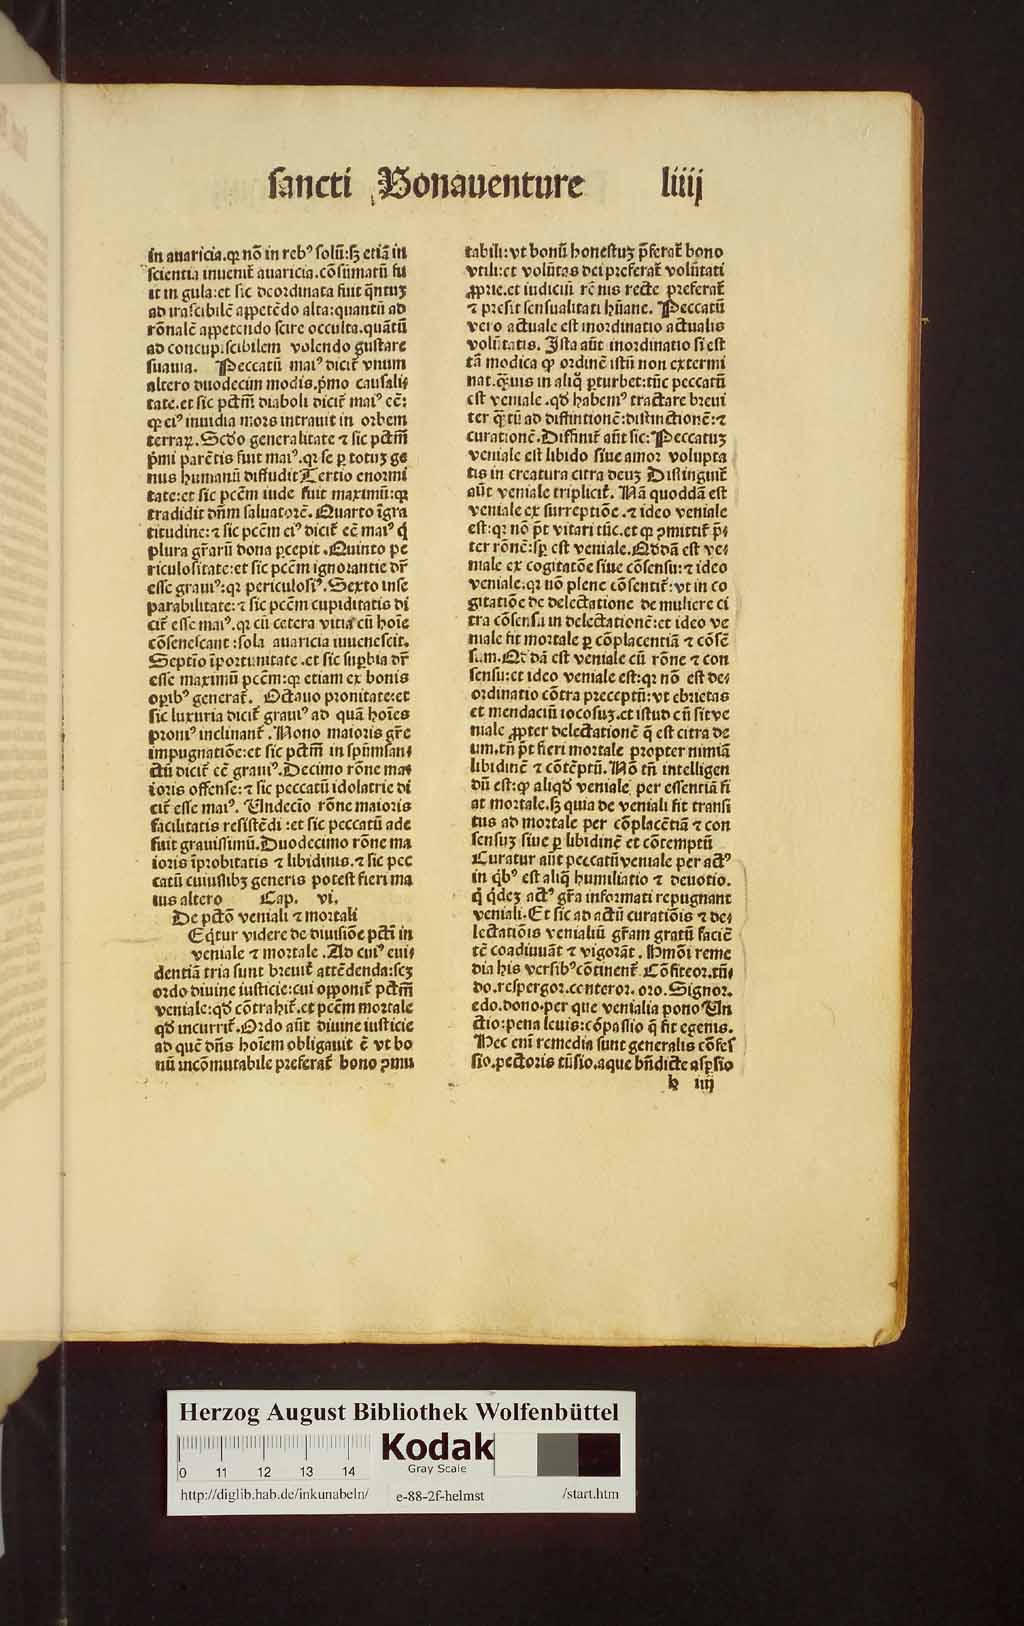 sancti Bonauenture liiij
in auaricia.qꝛ nō in rebꝰ solū:sꝫ etiā in
scientia inuenit̃ auaricia.cōsūmatū fu
it in gula:et sic deordinata fuit qntuꝫ
ad irascibilē appetēdo alta:quantū ad
rōnalē appetendo scire occulta.quātū
ad concupiscibilem volendo gustare
suauia. Peccatū maiꝰ dicit̃ vnum
altero duodecim modis.p̄mo causali⸗
tate.et sic pctm̄ diaboli dicit̃ maiꝰ eē:
qꝛ eiꝰ inuidia mors intrauit in orbem
terraꝝ. Secūdo generalitate ⁊ sic pctm̄
p̄mi parētis fuit maiꝰ.qꝛ se ꝑ totuꝫ ge
nus humanū diffudit Tertio enormi
tate:et sic pcēm iude fuit maximū:qꝛ
tradidit dn̄m saluatorē. Quarto īgra
titudine:⁊ sic pcēm eiꝰ dicit̃ eē maiꝰ q̇
plura gr̄arū dona ꝑcepit. Quinto pe
riculositate:et sic pcēm ignorantie dr̄
esse grauiꝰ:qꝛ periculosiꝰ. Sexto inse
parabilitate:⁊ sic pcēm cupiditatis di
cit̃ esse maiꝰ.qꝛ cū cetera vitia cū hoīe
cōsenescant :sola auaricia iuuenescit.
Septīo īportunitate .et sic suꝑbia dr̄
esse maximū pcēm:qꝛ etiam ex bonis
oꝑibꝰ generat̃. Octauo pronitate:et
sic luxuria dicit̃ grauiꝰ ad quā hoīes
proniꝰ inclinant̃. Nono maioris gr̄e
impugnatiōe:et sic pctm̄ in spūmsan⸗
ctū dicit̃ eē grauiꝰ. Decimo rōne ma⸗
ioris offense:⁊ sic peccatū idolatrie di
cit̃ esse maiꝰ. Undecīo rōne maioris
facilitatis resistēdi :et sic peccatū ade
fuit grauissimū. Duodecimo rōne ma
ioris īprobitatis ⁊ libidinis.⁊ sic pec
catū cuiuslibꝫ generis potest fieri ma
ius altero Cap. vi.
De pctō veniali ⁊ mortali
Eq̄tur videre de diuisiōe pcti in
veniale ⁊ mortale .Ad cuiꝰ eui⸗
dentiā tria sunt breuit̃ attēdenda:scꝫ
ordo diuine iusticie:cui opponit̃ pctm̄
veniale:qd̄ cōtrahit̃.et pcēm mortale
qd̄ incurrit̃. Ordo aūt diuine iusticie
ad quē dn̄s hoīem obligauit ē vt bo
nū incōmutabile preferat̃ bono ꝯmu
tabili:vt bonū honestuꝫ p̄ferat̃ bono
vtili:et volūtas dei preferat̃ volūtati
ꝓprie.et iudiciū rōnis recte preferat̃
⁊ presit sensualitati hūane. Peccatū
vero actuale est inordinatio actualis
volūtatis. Ista aūt inordinatio si est
tā modica ꝙ ordinē istū non extermi
nat.q̄uis in aliq̄ ꝑturbet:tūc peccatū
est veniale .qd̄ habemꝰ tractare breui
ter q̄tū ad diffinitionē:distinctionē:⁊
curationē. Diffinit̃ aūt sic: Peccatuꝫ
veniale est libido siue amor volupta
tis in creatura citra deuꝫ Distinguit̃
aūt veniale triplicit̃. Nā quoddā est
veniale ex surreptiōe .⁊ ideo veniale
est:qꝛ nō p̄t vitari tūc.et ꝙ ꝯmittit̃ p̄⸗
ter rōnē:sp̄ est veniale. Qd̄dā est ve⸗
niale ex cogitatōe siue cōsensu:⁊ ideo
veniale:qꝛ nō plene cōsentit̃:vt in co
gitatiōe de delectatione de muliere ci
tra cōsensū in delectationē:et ideo ve
niale fit mortale ꝑ cōplacentiā ⁊ cōsē
sum. Qd̄dā est veniale cū rōne ⁊ con
sensu:et ideo veniale est:qꝛ nō est de⸗
ordinatio cōtra preceptū:vt ebrietas
et mendaciū iocosuꝫ.et istud cū sit ve
niale ꝓpter delectationē q̄ est citra de
um.tn̄ p̄t fieri mortale propter nimiā
libidinē ⁊ cōtēptū. Nō tn̄ intelligen
dū est:ꝙ aliqd̄ veniale per essentiā fi
at mortale.sꝫ quia de veniali fit transi
tus ad mortale per cōplacētiā ⁊ con
sensuꝫ siue ꝑ libidinē et cōtemptū
Curatur aūt peccatū veniale per actꝰ
in q̇bꝰ est aliq̄ humiliatio ⁊ deuotio.
q̇ q̇deꝫ actꝰ gr̄a informati repugnant
veniali. Et sic ad actū curatiōis ⁊ de⸗
lectatiōis venialiū gr̄am gratū faciē
tē coadiuuāt ⁊ vigorāt. Hmōi reme
dia his versibꝰ cōtinent̃. Cōfiteor.tū⸗
do.respergor.conteror. oro. Signor.
edo.dono.per que venialia pono Un
ctio:pena leuis:cōpassio q̄ fit egenis.
Hec eni remedia sunt generalis cōfes
sio.pectoris tūsio.aque bn̄dicte aspsio
h iiij
Herzog August Bibliothek Wolfenbüttel
Kodak
Gray Scale
0 11 12 13 14
http://diglib.hab.de/inkunabeln/ e-88-2f-helmst /start.htm